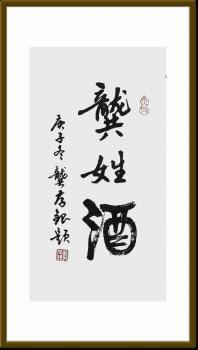 龔姓酒
庚子冬龔存銀題